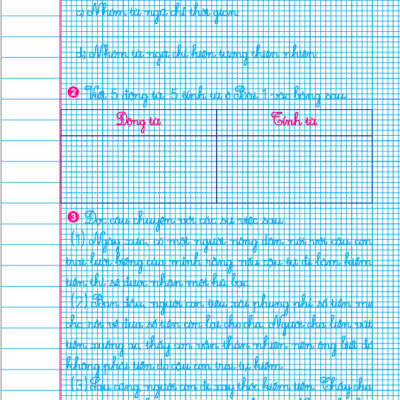 c) Nhóm từ ngữ chỉ thời gian:
d) Nhóm từ ngữ chỉ hiện tượng thiên nhiên:
2 Viết 5 động từ, 5 tính từ ở Bài 1 vào bảng sau:
Động từ Tính từ
3 Đọc câu chuyện với các sự việc sau:
(1) Ngày xưa, có một người nông dân nói với cậu con
trai lười biếng của mình rằng nếu cậu tự đi làm kiếm
tiền thì sẽ được nhận một hũ bạc.
(2) Ban đầu, người con tiêu xài phung phí số tiền mẹ
cho rồi về đưa số tiền còn lại cho cha. Người cha liền vứt
tiền xuống ao, thấy con vẫn thản nhiên nên ông biết đó
không phải tiền do cậu con trai tự kiếm.
(3) Sau cùng người con đi xay thóc kiếm tiền. Thấy cha